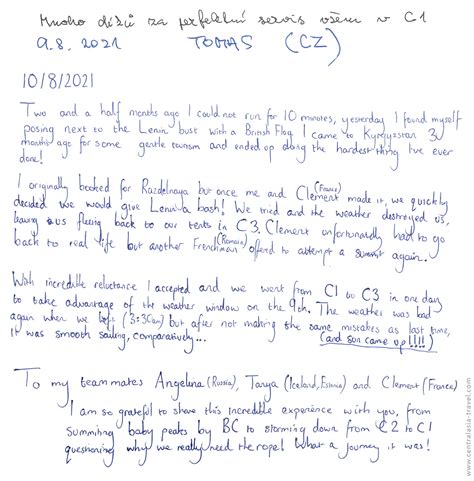 Mnoho díků za perfektní servis všem v C1
9.8.2021 TOMAS (CZ)
10/8/2021
Two and a half months ago I could not run for 10 minutes, yesterday I found myself
posing next to the Lenin bust with a British Flag. I came to Kyrgyzstan 3
months ago for some gentle tourism and ended up doing the hardest thing I've ever
done!
I originally booked for Razdelnaya but once me and Clement (France) made it, we quickly
decided we would give Lenin a bash! We tried and the weather destroyed us,
leaving us fleeing back to our tents in C3. Clement unfortunately had to go
back to real life but another Frenchman (Romain) offered to attempt a summit again.
With incredible reluctance I accepted and we went from C1 to C3 in one day
to take advantage of the weather window on the 9th. The weather was bad
again when we left (3:30am) but after not making the same mistakes as last time,
it was smooth sailing, comparatively... (and sun came up!!!!)
To my teammates Angelina (Russia), Tanya (Iceland, Estonia) and Clement (France)
I am so grateful to share this incredible experience with you, from
summiting baby peaks by BC to storming down from C2 to C1
questioning why we really need the rope! What a journey it was!
www.centralasia-travel.com